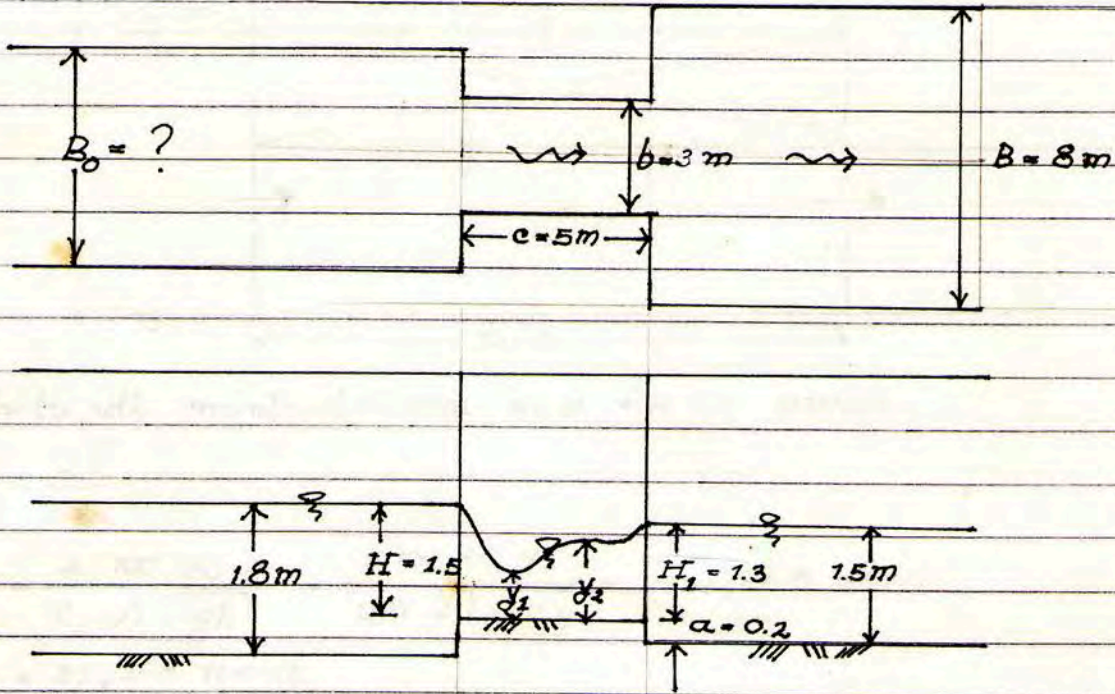 B₀ = ?
b=3 m
B = 8 m
c = 5m
1.8m
H = 1.5
y₁
y₂
H₁ = 1.3
1.5m
a = 0.2